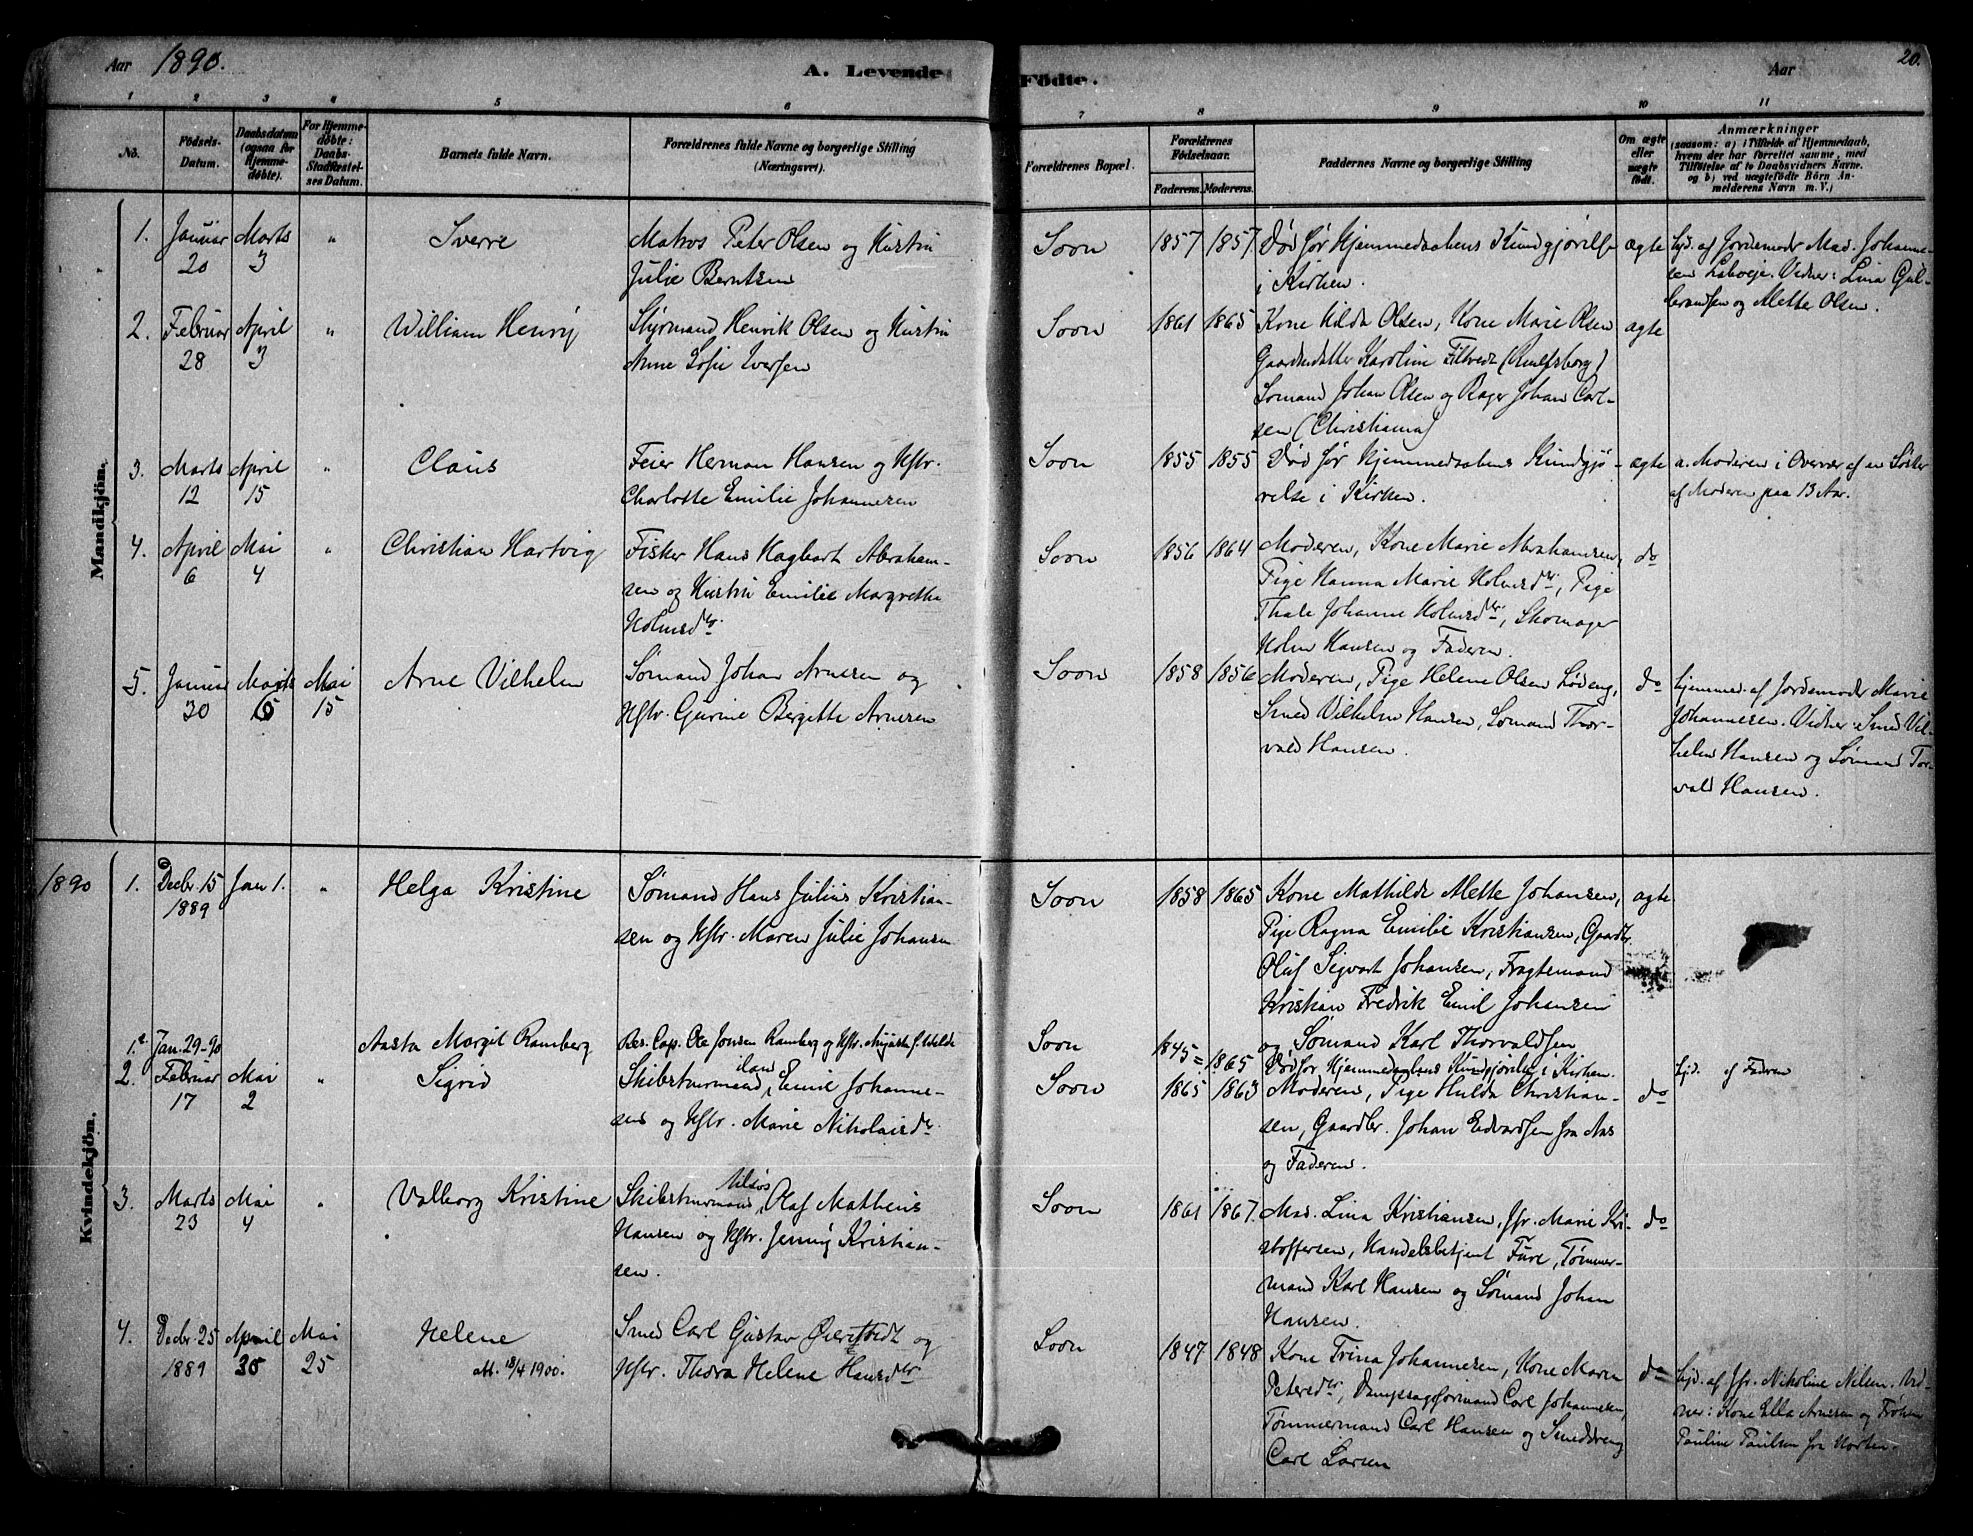 Aar 1890.
A. Levende Födte.
Aar
20.
1 2 3 4 5 6 7 8 9 10 11
No.
Födsels-
Datum.
Daabsdatum
(ogsaa for
Hjemme-
döbte).
For Hjemme-
döbte:
Daabs-
Stadfæstel-
ses Datum.
Barnets fulde Navn.
Forældrenes fulde Navne og borgerlige Stilling
(Næringsvei).
Forældrenes Bopæl.
Forældrenes
Födselsaar.
Faderens. Moderens.
Faddernes Navne og borgerlige Stilling
Om ægte
eller
uægte
födt.
Anmærkninger
(saasom: a) i Tilfælde af Hjemmedaab,
hvem der har forrettet samme, med
Tilföielse af to Daabsvidners Navne.
og b) ved uægtefödte Börn An-
melderens Navn m. V.)
Mandkjön.
1. Januar 20 Marts 3 " Sverre
Matros Peter Olsen og Hustru
Julie Berntsen
Soon 1857 1857
Död før Hjemmedaabens Kundgjørelse
i Kirken.
ægte
hjd. af Jordemoder Mad. Johanne-
sen Labveje. Vidner: Lina Gul-
brandsen og Mette Olsen.
2. Februar 28 April 3 " William Henry
Styrmand Henrik Olsen og Hustru
Anne Sofie Iversen
Soon 1861 1865
Kone Hilda Olsen, Kone Marie Olsen
Gaardmdatter Karoline Filtvedt
Sømand Johan Olsen og Bager Johan Carl-
sen (Christiania)
ægte
3. Marts 12 April 15 " Claus
Feier Herman Hansen og Hstr.
Charlotte Emilie Johannesen
Soon 1855 1855
Död før Hjemmedaabens Kundgjø-
relse i Kirken.
ægte
a. Moderen i Overvær af en Søster
af Moderen paa 13 Aar.
4. April 6 Mai 4 " Christian Hartvig
Fisker Hans Hagbart Abraham-
sen og Hustru Emilie Margrethe
Holmsdtr.
Soon 1856 1864
Moderen, Kone Marie Abrahamsen,
Pige Hanna Marie Holmsdtr, Pige
Thale Johanne Holmsdtr, Skomager
Holm Hansen og Faderen.
do
5. Januar 30 Marts 16 Mai 15 Arne Vilhelm
Sømand Johan Arnesen og
Hstr. Gurine Birgitte Arnesen
Soon 1858 1856
Moderen, Pige Helene Olsen Lødeng,
Smed Vilhelm Hansen, Sømand Thor-
vald Hansen.
do
hjemmed. af Jordemoder Marie
Johannesen. Vidner: Smed Vil-
helm Hansen og Sømand Tor-
vald Hansen.
Kvindekjön.
1890 1. Decbr 15 1889 Jan 1. " Helga Kristine
Sømand Hans Julius Kristian-
sen og Hstr. Maren Julie Johansen
Soon 1858 1865
Kone Mathilde Mette Johansen,
Pige Ragna Emilie Kristiansen, Gaardbr.
Oluf Sigvart Johansen, Fragtemand
Kristian Fredrik Emil Johansen
og Sømand Karl Thorvaldsen
ægte
1.a Jan. 29-90 Aasta Margit Ramberg
Res. Cap. Ole Jonsen Ramberg og Hstr.
Soon 1845 = 1865
Død før Hjemmedaabens Kundgjørelse i Kirken.
hjd. af Faderen
2. Februar 17 Mai 2 " Sigrid
Skibstømmermand, Emil Johanne-
sen og Hstr. Marie Nikolaisdtr.
Soon 1865 1863
Moderen, Pige Hulda Christian-
sen, Gaardbr. Johan Edvardsen fra Aas
og Faderen.
do
3. Marts 23 Mai 4 " Valborg Kristine
Skibstømmermand, Olaf Matheus
Hansen og Hstr. Jenny Kristian-
sen.
Soon 1861 1867.
Mad. Lina Kristiansen, Jfr. Marie Kri-
stoffersen, Handelsbetjent Fure, Tømmer-
mand Karl Hansen og Sømand Johan
Hansen.
do
4. Decbr 25 1889 April 30 Mai 25 Helene
att. 18/4 1900.
Smed Carl Gustav og
Hstr. Thora Helene Hansdtr
Soon 1847 1848
Kone Trina Johannesen, Kone Maren
Petersdtr, Dampsagformand Carl Johannesen,
Tømmermand Carl Hansen og Smeddreng
Carl Larsen
do
hjd. af Jfr. Nikoline Nilsen. Vid-
ner: Kone Ella Arnesen og Frøken
Pauline Paulsen fra Horten.